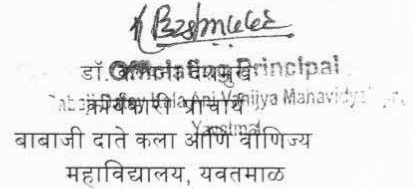 डॉ. देशमुख
Officiating Principal
कार्यकारी प्राचार्य
Kala Ani Vanijya Mahavidyalaya
Yavatmal
बाबाजी दाते कला आणि वाणिज्य
महाविद्यालय, यवतमाळ